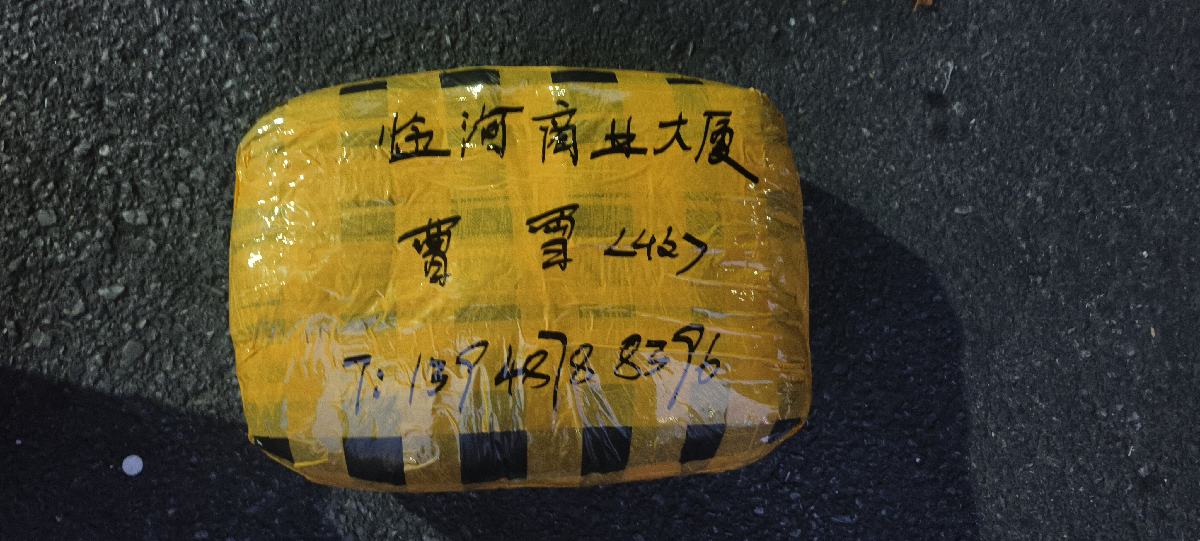 临河商业大厦
曹雪<收>
T: 139 4878 8396